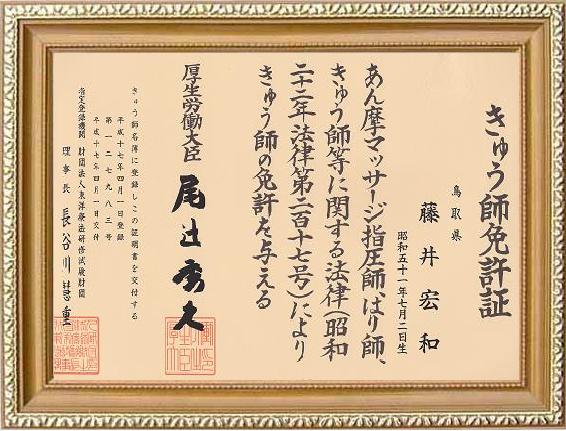 きゅう師免許証
鳥取県
藤井宏和
昭和五十一年七月二日生
あん摩マッサージ指圧師、はり師、
きゅう師等に関する法律(昭和
二十二年法律第二百十七号)により
きゅう師の免許を与える
厚生労働大臣 尾辻秀久
きゅう師名簿に登録しこの証明書を交付する
平成十七年四月一日登録
第一二七九八三号
平成十七年四月一日交付
指定登録機関 財団法人東洋療法研修試験財団
理事長 長谷川慧重